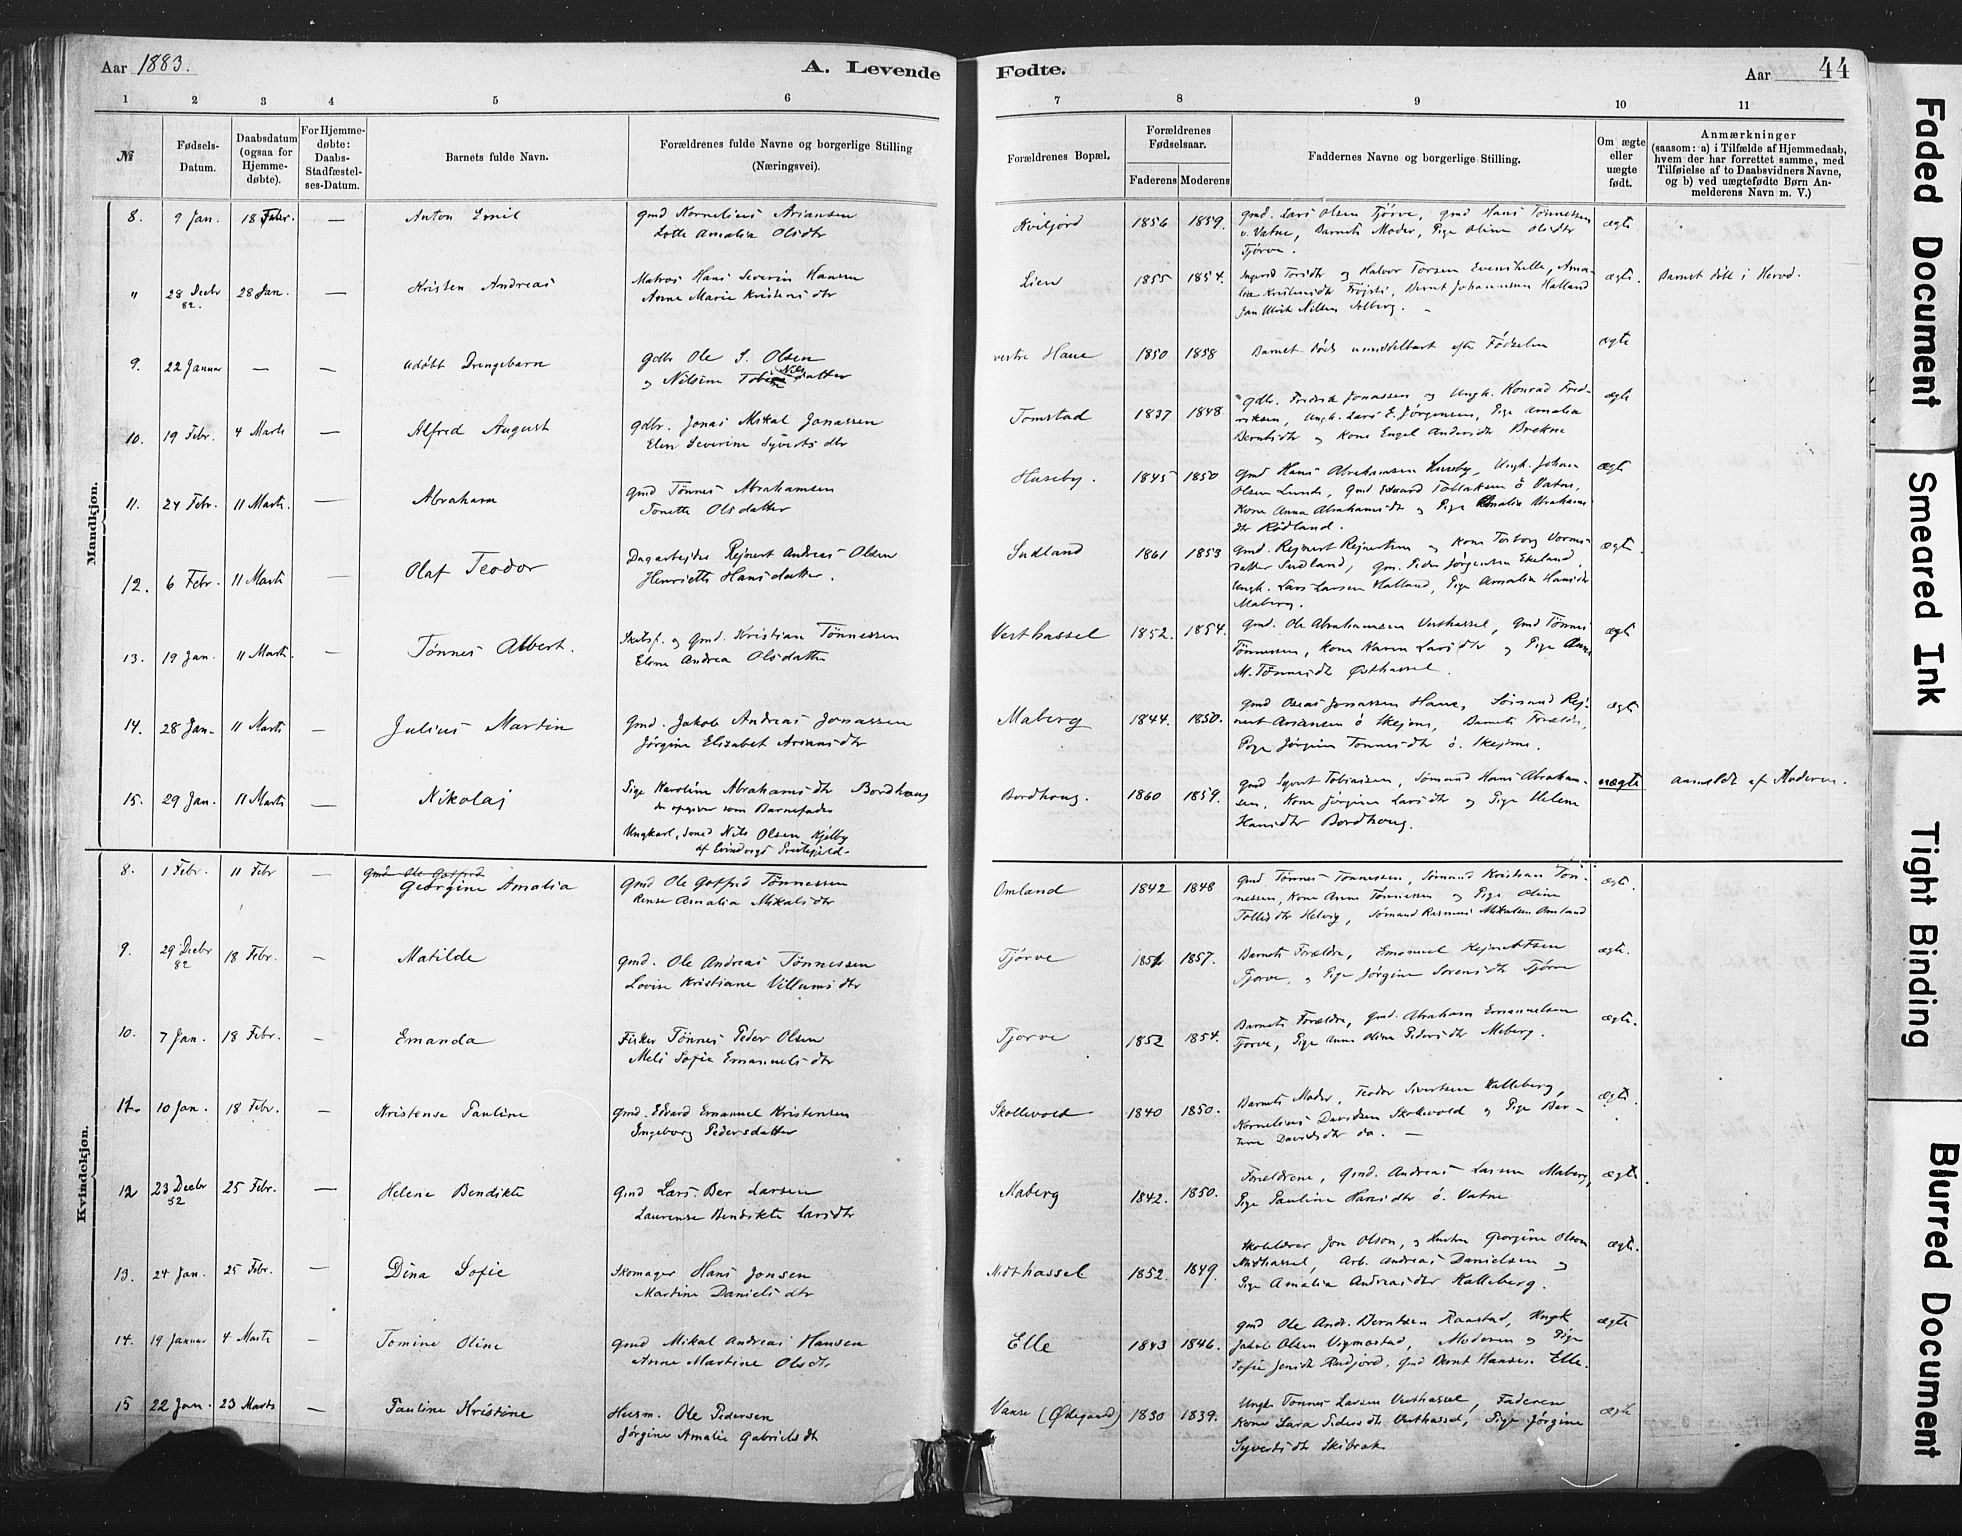 Aar 1883.
A. Levende
Fødte.
Aar
44
1 2 3 4 5 6 7 8 9 10 11
№
Fødsels-
Datum.
Daabsdatum
(ogsaa for
Hjemme-
døbte).
For Hjemme-
døbte:
Daabs-
Stadfæstel-
ses-Datum.
Barnets fulde Navn.
Forældrenes fulde Navne og borgerlige Stilling
(Næringsvei).
Forældrenes Bopæl.
Forældrenes
Fødselsaar.
Faderens Moderens
Faddernes Navne og borgerlige Stilling.
Om ægte
eller
uægte
født.
Anmærkninger
(saasom: a) i Tilfælde af Hjemmedaab,
hvem der har forrettet samme, med
Tilføielse af to Daabsvidners Navne,
og b) ved uægtefødte Børn An-
melderens Navn m. V.)
Mandkjøn.
8. 9 Jan. 18 Febr. — Anton Emil
Gmd Kornelius Ariansen
Lotte Amalia Olsdtr
Kviljord 1856 1859.
Gmd. Lars Olsen Tjörve, Gmd Hans Tönnessen
v. Vatne, Barnets Moder, Pige Oline Olsdtr
Tjörve.
ægte
" 28 Decbr 82. 28 Jan. — Kristen Andreas
Matros Hans Severin Hansen
Anne Marie Kristensdtr
Lien 1855 1854.
ægte. Barnet døbt i Herod.
9. 22 Januar — — Udøbt Drengebarn
Gdbr Ole S. Olsen
og Nilsine Nilsdatter
vestre Haue 1850 1858
Barnet døde umiddelbart efter Fødselen
ægte
10. 19 Febr. 4 Marts — Alfred August
Gdbr. Jonas Mikal Jonassen
Elen Severine Syvertsdtr
Tomstad 1837 1848
Gdbr. Fredrik Jonassen og Ungk. Konrad Fred-
riksen, Ungk. Lars E. Jørgensen, Pige Amalia
Berntsdtr og Kone Engel Andersdtr Brekne
ægte
11. 24 Febr. 11 Marts. — Abraham
Gmd Tönnes Abrahamsen
Tonette Olsdatter
Huseby. 1845 1850
Gmd Hans Abrahamsen Huseby, Ungk. Johan
Olsen Lunde, Gmd Edvard Tollaksen ö Vatne,
Kone Anna Abrahamsdtr og Pige Amalia Abrahams
dtr Rödland.
ægte
12. 6 Febr. 11 Marts — Olaf Teodor
Dagarbejder Rejnert Andreas Olsen
Henriette Hansdatter.
Sudland 1861 1853
Gmd. Rejnert Rejnertsen og Kone Torborg Vorms-
datter Sudland, Gm. Peder Jörgensen Ekeland,
Ungk. Lars Larsen Halland, Pige Amalia Hansdtr
Maberg.
ægte.
13. 19 Jan. 11 Marts. — Tönnes Albert.
Skibsf. og Gmd. Kristian Tönnessen
Elene Andrea Olsdatter
Vesthassel 1852. 1854.
Gmd. Ole Abrahamsen Vesthassel, Gmd Tönnes
Tönnessen, Kone Karen Larsdtr og Pige Anne
M. Tönnesdtr Østhassel.
ægte
14. 28 Jan. 11 Marts — Julius Martin
Gmd. Jakob Andreas Jonassen
Jörgine Elisabet Ariansdtr
Maberg 1844. 1850.
Gmd Oseas Jonassen Haue, Sörmand Rej-
nert Ariansen ö Skejme, Barnets Forældre,
Pige Jörgine Tönnesdtr ö. Skejme.
ægte
15. 29 Jan. 11 Marts — Nikolaj
Pige Karoline Abrahamsdtr Bordhaug
der opgiver som Barnefader
Ungkarl, Sömd Nils Olsen Kjelby
af Præstegjeld.
Bordhaug. 1860 1859.
Gmd Syvert Tobiassen, Sömand Hans Abraham-
sen, Kone Jörgine Larsdtr og Pige Helene
Hansdtr Bordhaug.
uægte anmeldt af Moderen.
Kvindekjøn.
8. 1 Febr. 11 Febr — Gmd Ole Gotfred
Georgine Amalia
Gmd Ole Gotfred Tönnessen
Rense Amalia Mikalsdtr
Omland 1842 1848
Gmd. Tönnes Tönnessen, Sömand Kristian Tön-
nessen, Kone Anne Tönnessen og Pige Oline
Tollisdtr Helvig, Sömand Rasmus Mikalsen Omland
ægte.
9. 29 Decbr 82 18 Febr. — Matilde
Gmd. Ole Andreas Tönnessen
Lovise Kristiane Villumsdtr
Tjörve 1857.
Barnets Forældre, Emanuel Rejnertsen
Tjorve, og Pige Jörgine Sorensdtr Tjörve
ægte.
10. 7 Jan. 18 Febr. — Emanda
Fisker Tönnes Peder Olsen
Meli Sofie Emanuelsdtr
Tjorve 1852 1854.
Barnets Forældre, Gmd. Abraham Emanuelsen
Tjorve, Pige Anne Oline Pedersdtr Meberg.
ægte.
11. 10 Jan. 18 Febr. — Kristense Pauline
Gmd. Edvard Emanuel Kristensen
Ingeborg Pedersdatter
Skollevold 1840 1850.
Barnets Moder, Teodor Sivertsen Kalleberg,
Kornelius Davidsen Skollevold og Pige Ber-
tine Davidsdtr do. —
ægte.
12 23 Decbr 82 25 Febr. — Helene Bendikte
Gmd Lars Ber Larsen
Laurense Bendikte Larsdtr
Maberg 1842. 1850.
Forældrene, Gmd. Andreas Larsen Maberg,
Pige Pauline Hansdtr ö. Vatne
ægte.
13. 24 Jan. 25 Febr. — Dina Sofie
Skomager Hans Jonsen
Martine Danielsdtr
Midthassel 1852. 1849.
Skolelærer Jon Olson, og Hustru Georgine Olson
Midthassel, Arb. Andreas Danielsen og
Pige Amalia Andreasdtr Kalleberg.
ægte.
14. 19 Januar 4 Marts — Tomine Oline
Gmd Mikal Andreas Hansen
Anne Martine Olsdtr
Elle 1843 1846.
Gmd Ole Andr. Berntsen Raastad, Ungk
Jakob Olsen Vigmostad, Moderen og Pige
Sofie Jensdtr Rudjord, Gmd Bernt Hansen Elle.
ægte
15 22 Jan. 23 Marts — Pauline Kristine
Husm. Ole Pedersen
Jörgine Amalie Gabrielsdtr
Vanse (Ødegaard) 1830 1839.
Ungk Tönnes Larsen Vesthassel, Faderen
Kone Sara Pedersdtr Vesthassel, Pige Jörgine
Syvertsdtr Skibrak
ægte
Faded Document
Smeared Ink
Tight Binding
Blurred Document